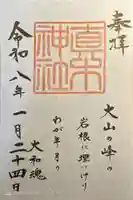 奉拝
大山の峰の
岩根に埋にけり
わが年月の
大和魂
令和八年一月二十四日